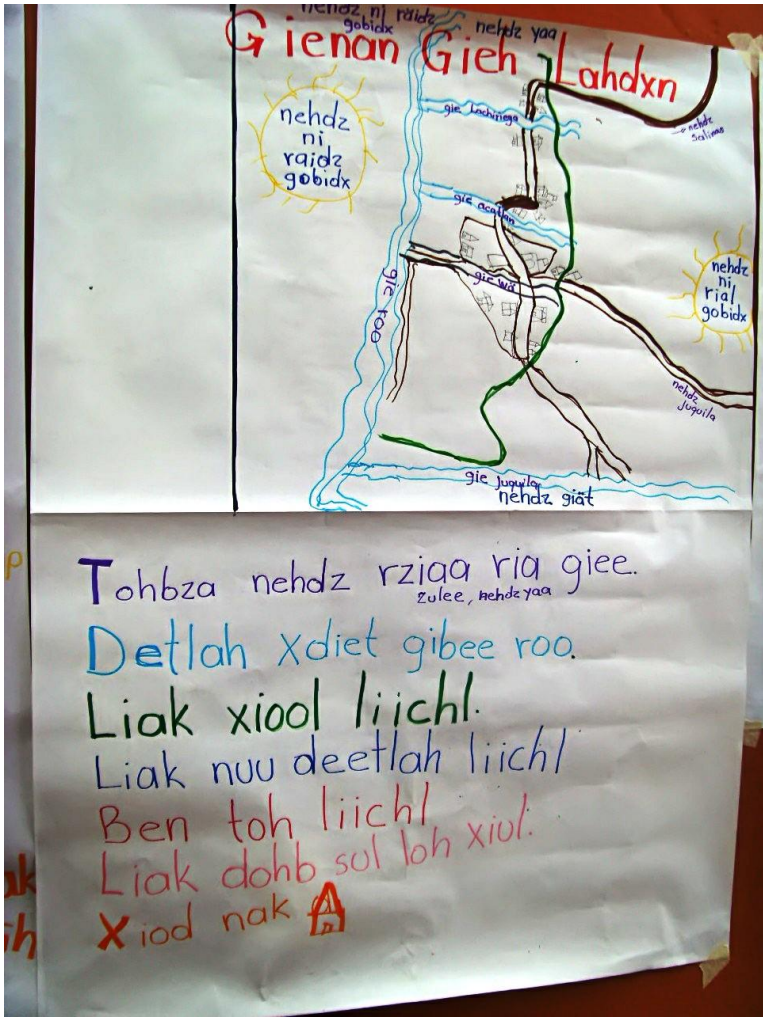 nehdz ni räidz
gobidx
nehdz yaa
Gienan Gieh Lahdxn
nehdz
ni
raidz
gobidx
gie Lachiriega
nehdz
Salinas
gie acatlan
gie roo
gie wä
nehdz
ni
rial
gobidx
nehdz
Juquila
gie Juquila
nehdz giät
Tohbza nehdz rziaa ria giee.
zulee, nehdz yaa
Detlah xdiet gibee roo.
Liak xiool liichl.
Liak nuu deetlah liichl
Ben toh liichl
Liak dohb sul loh xiul.
Xiod nak
p
ak
ih